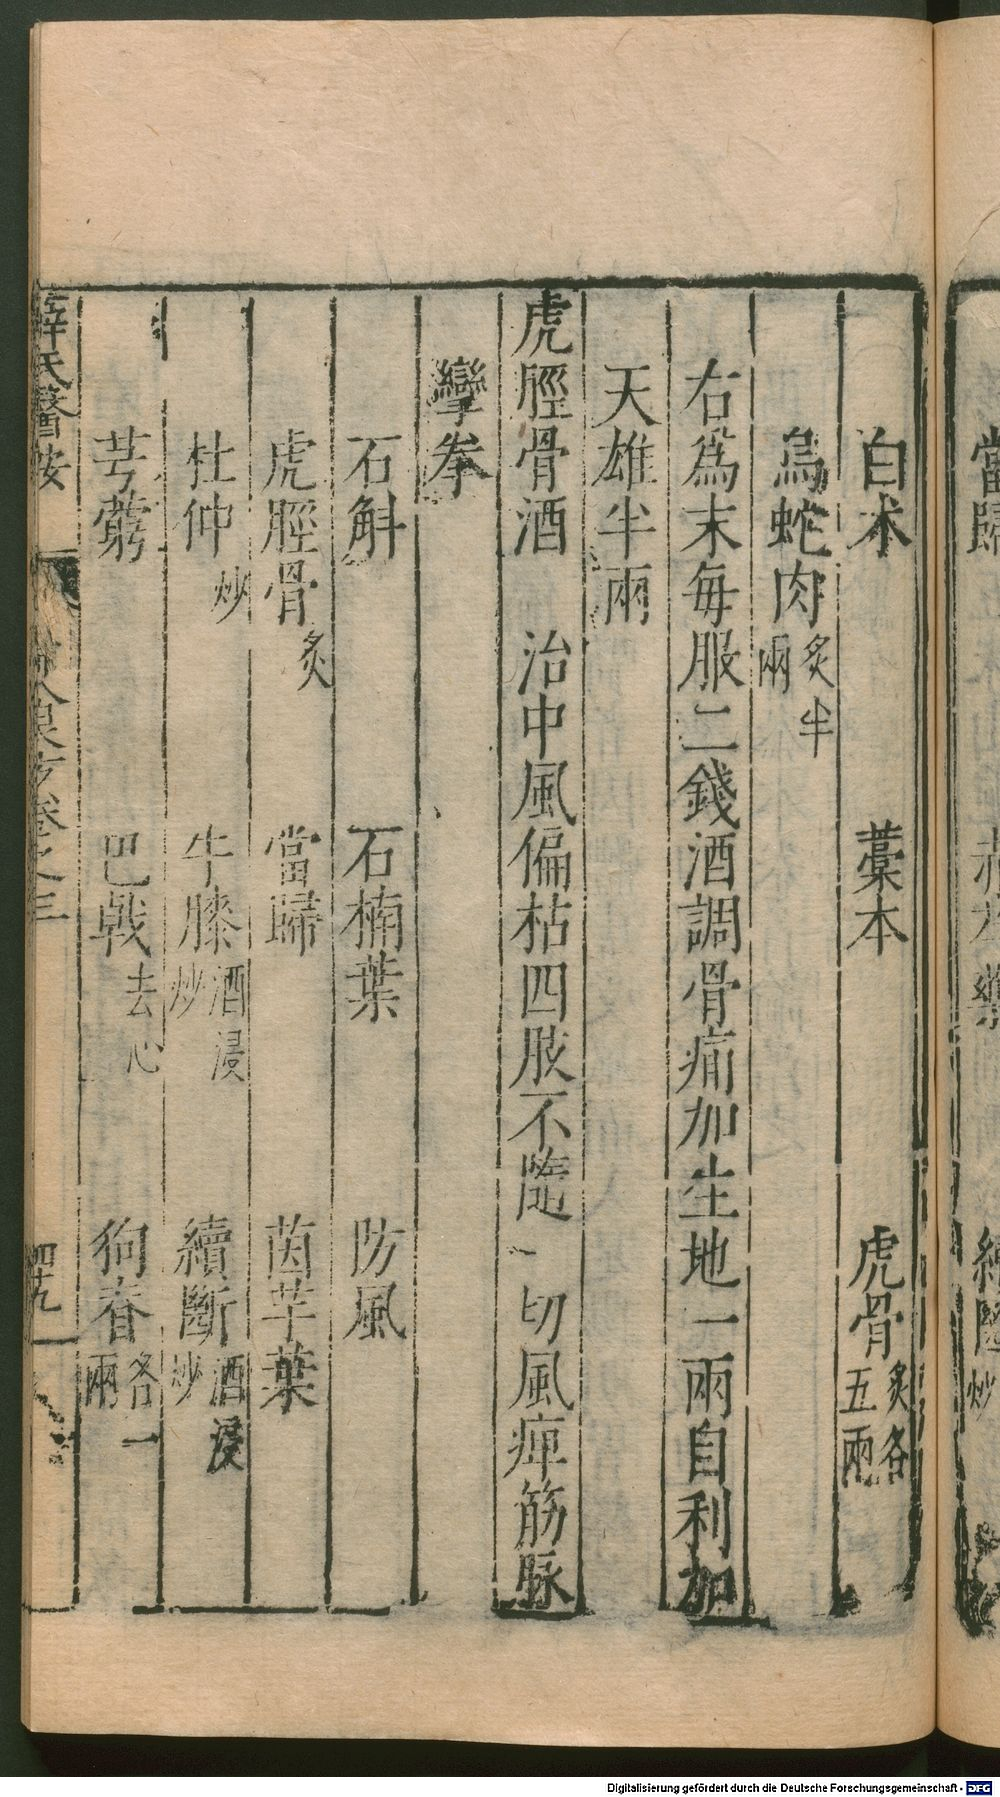 當歸 赤 續斷炒
白朮 藁本 虎骨炙各五兩
烏蛇肉炙半兩
右爲末每服二錢酒調骨痛加生地一兩自利加
天雄半兩
虎脛骨酒 治中風偏枯四肢不隨一切風痺筋脉
攣拳
石斛 石楠葉 防風
虎脛骨炙 當歸 茵芋葉
杜仲炒 牛膝酒浸炒 續斷酒浸炒
芎藭 巴戟去心 狗脊各一兩
薛氏醫按 良方卷之三 四九
Digitalisierung gefördert durch die Deutsche Forschungsgemeinschaft - DFG